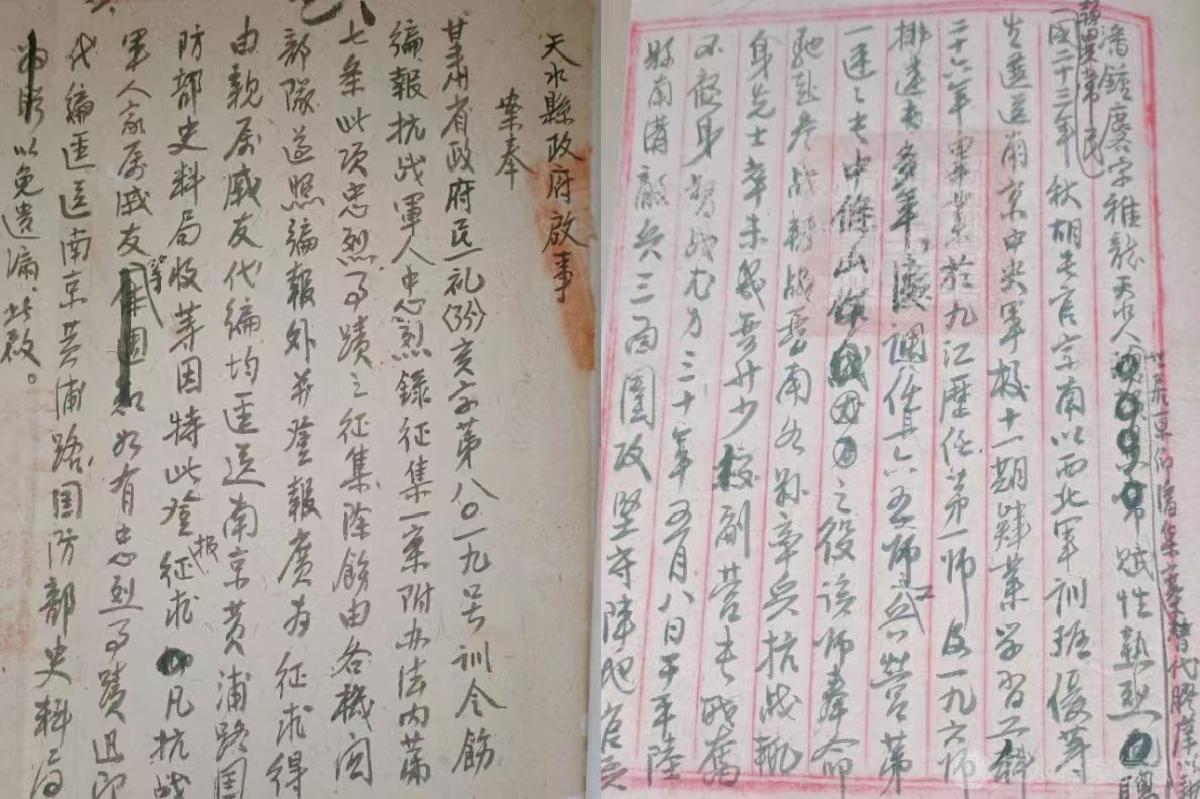 天水縣政府啟事
案奉
甘肅省政府民一礼(35)亥字第八〇一九号訓令飭
編報抗战軍人忠烈錄征集一案附办法内第
七条此項忠烈事蹟之征集除飭由各機関
部隊遂照編報外並登報廣為征求得
由親屬戚友代編均逕送南京黄浦路国
防部史料局收等因特此登报征求凡抗战
軍人家屬戚友等如有忠烈事蹟迅即
代編逕送南京黄浦路国防部史料局
以免遺漏此啟。
潘鏡塵字雅龍天水人賦性熱烈聰
世居東
替代膠庠以
國二十三年秋胡長官宗南以西北軍訓班優等
生選送南京中央軍校十一期肄業学習工科
二十六年畢業於九江歷任第一師及一九六師
排連長調任一六五師工兵營第
一連連長中條山之役該師奉命
馳赴參战轉战晋南各縣率兵抗战輒
身先士卒未幾晋升少校副营長战奮
不顧身努战尤力三十年五月八日于平陸
縣南溝敵兵三面圍攻坚守陣地官兵